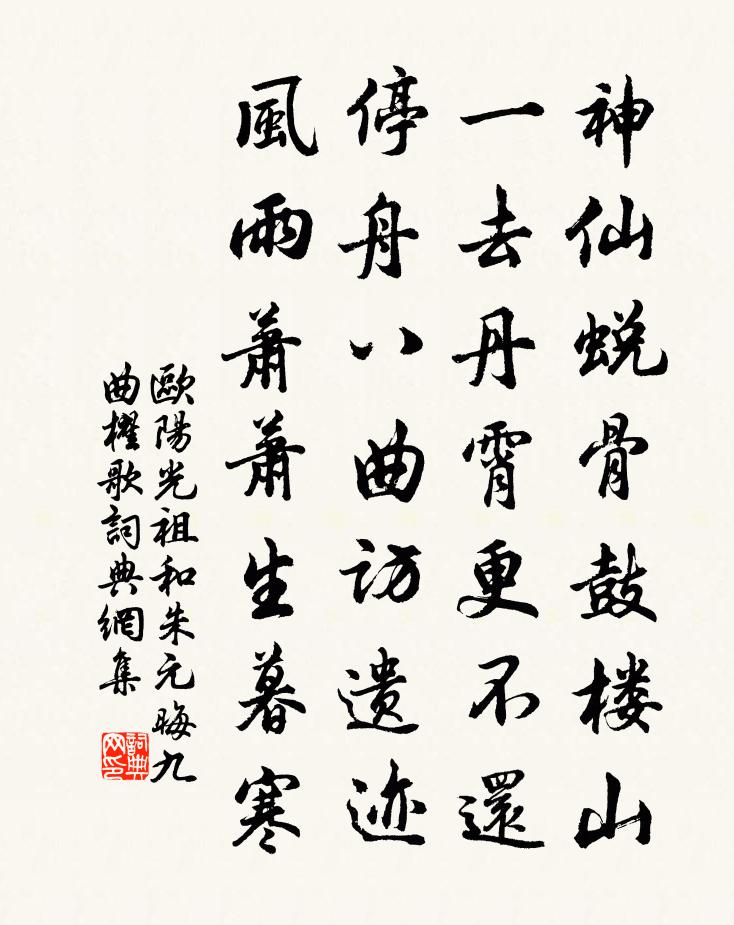 神仙蜕骨鼓楼山
一去丹霄更不還
停舟八曲訪遗迹
風雨蕭蕭生暮寒
歐陽光祖和朱元晦九
曲櫂歌詞典網集
詞典網印